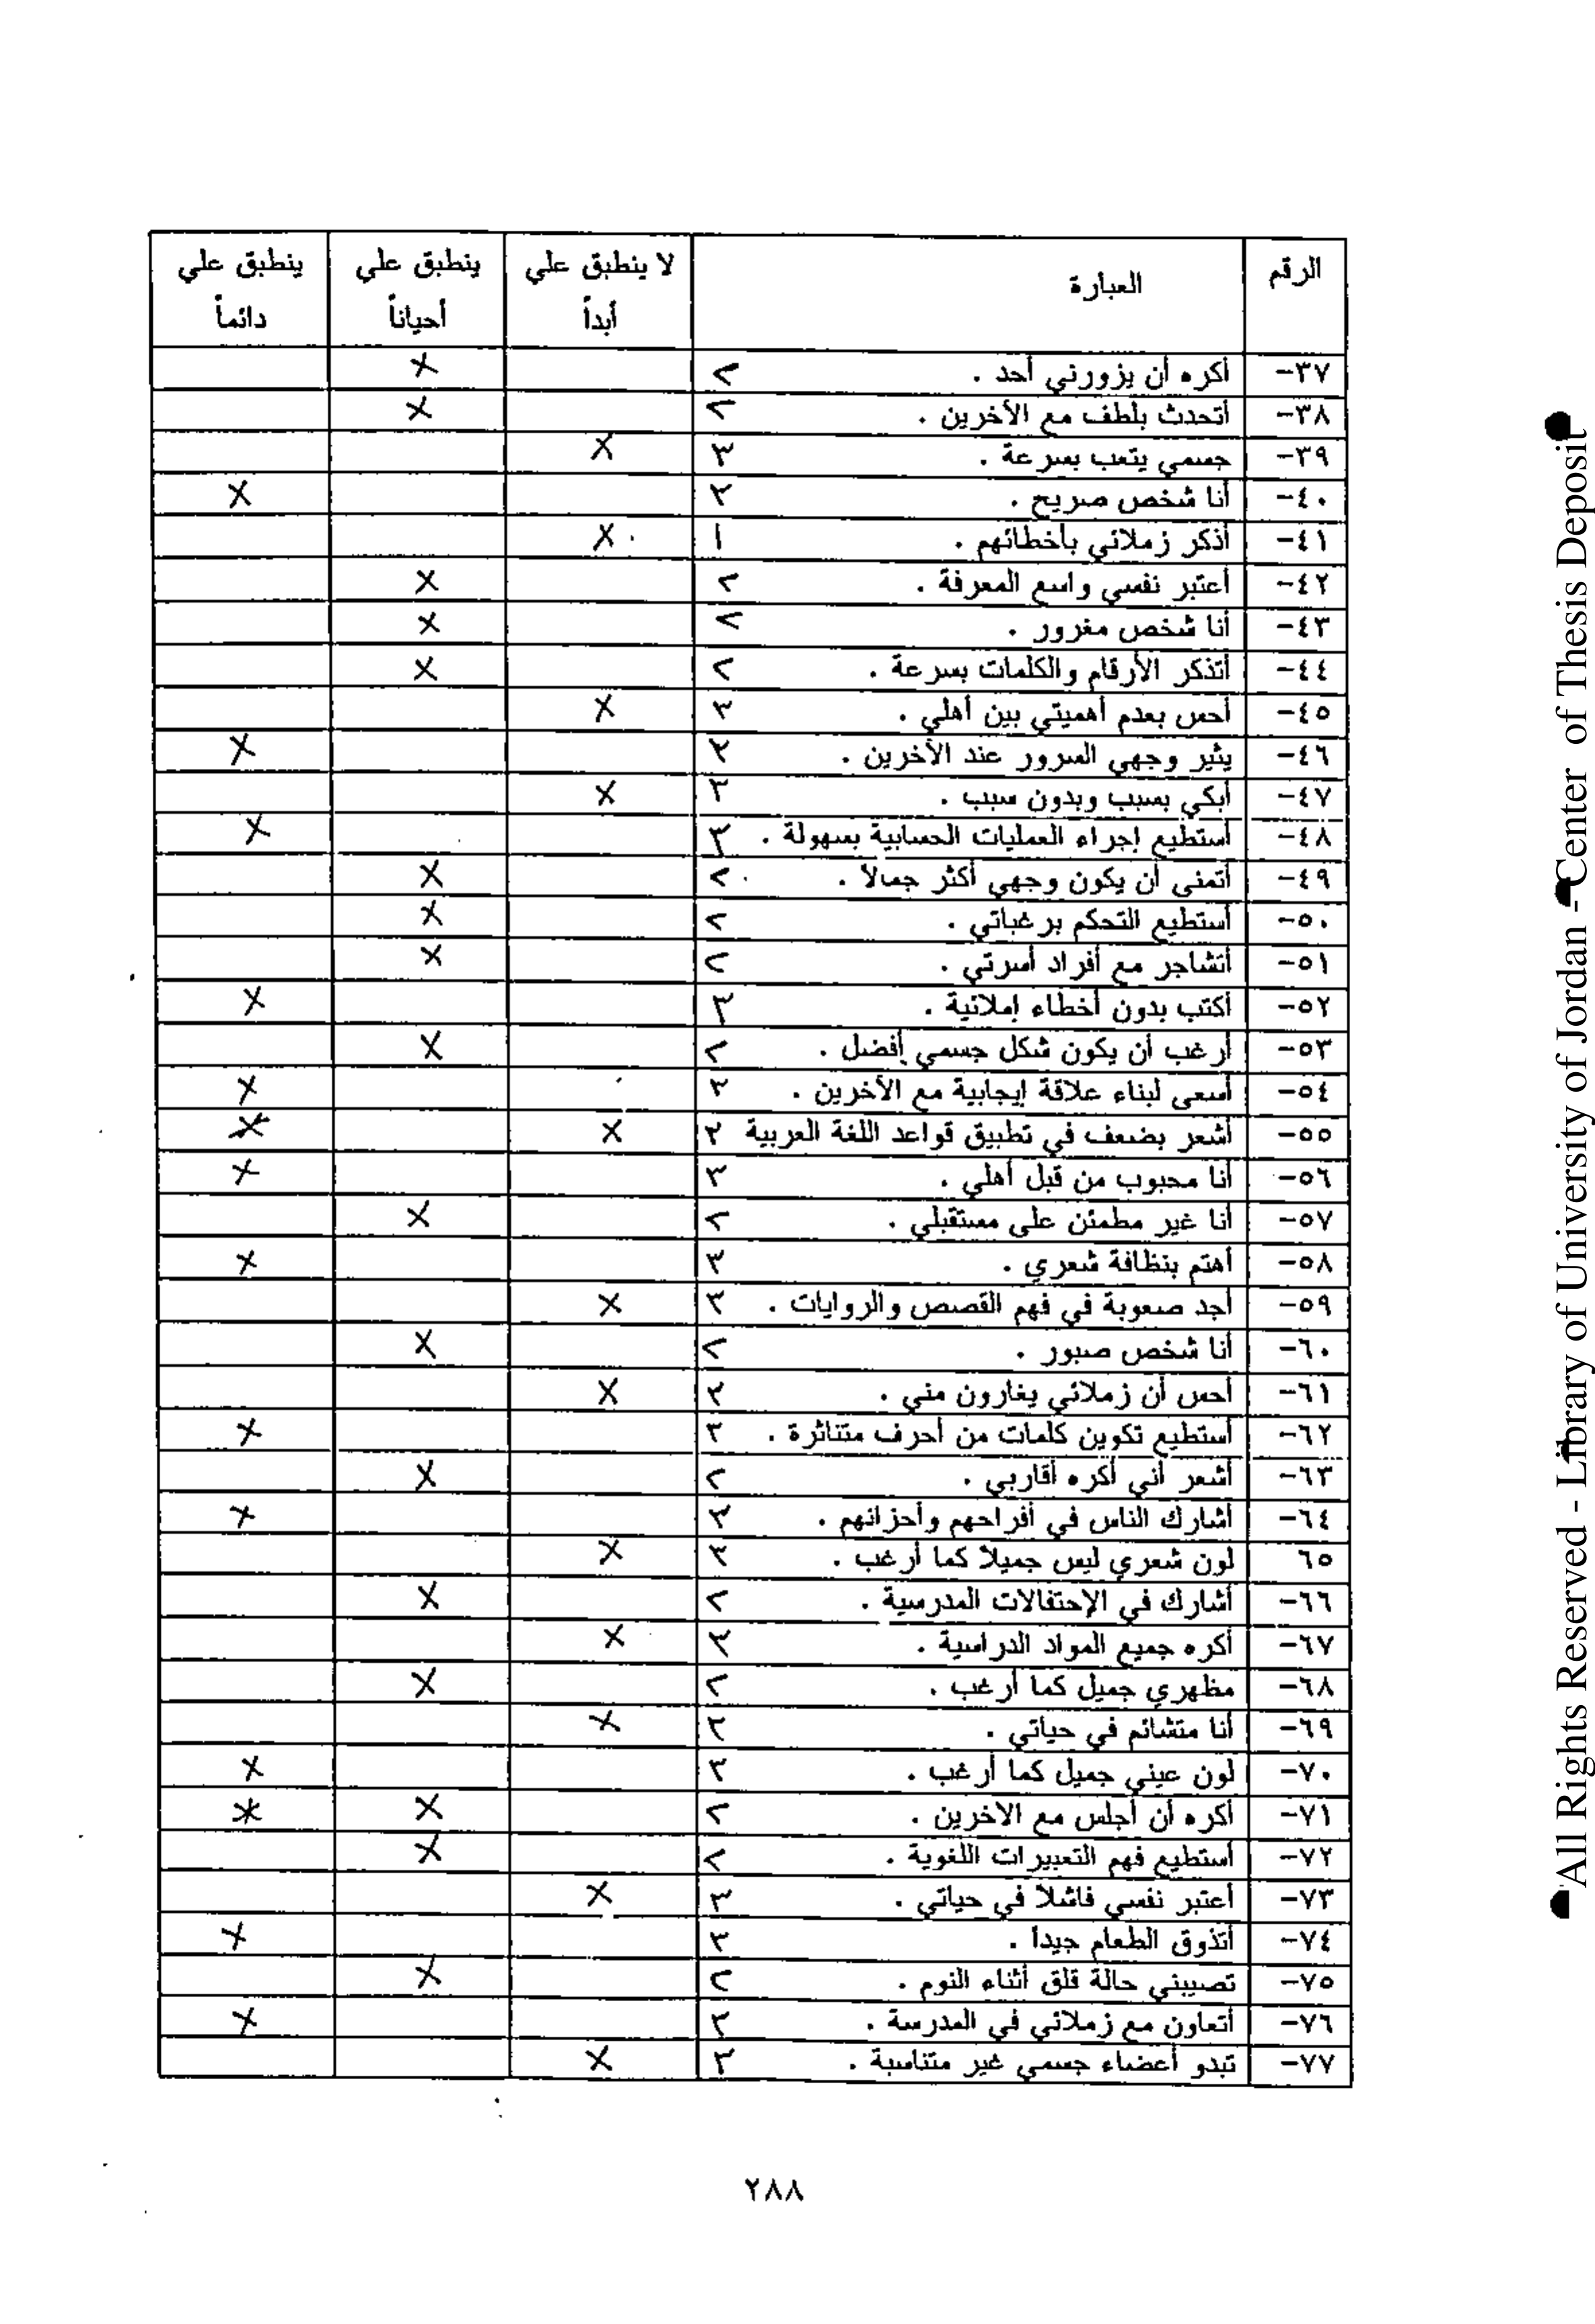 الرقم العبارة لا ينطبق علي أبداً ينطبق علي أحياناً ينطبق علي دائماً
٣٧- أكره أن يزورني أحد . ٢ X
٣٨- أتحدث بلطف مع الأخرين . ٢ X
٣٩- جسمي يتعب بسرعة . ٣ X
٤٠- أنا شخص صريح . ٣ X
٤١- أذكر زملائي بأخطائهم . ١ X
٤٢- أعتبر نفسي واسع المعرفة . ٢ X
٤٣- أنا شخص مغرور . ٢ X
٤٤- أتذكر الأرقام والكلمات بسرعة . ٢ X
٤٥- أحس بعدم أهميتي بين أهلي . ٣ X
٤٦- يثير وجهي السرور عند الأخرين . ٣ X
٤٧- أبكي بسبب وبدون سبب . ٣ X
٤٨- أستطيع إجراء العمليات الحسابية بسهولة . ٣ X
٤٩- أتمنى أن يكون وجهي أكثر جمالاً . ٢ X
٥٠- أستطيع التحكم برغباتي . ٢ X
٥١- أتشاجر مع أفراد أسرتي . ٢ X
٥٢- أكتب بدون أخطاء إملائية . ٣ X
٥٣- أرغب أن يكون شكل جسمي أفضل . ٢ X
٥٤- أسعى لبناء علاقة إيجابية مع الأخرين . ٣ X
٥٥- أشعر بضعف في تطبيق قواعد اللغة العربية ٣ X X
٥٦- أنا محبوب من قبل أهلي . ٣ X
٥٧- أنا غير مطمئن على مستقبلي . ٢ X
٥٨- أهتم بنظافة شعري . ٣ X
٥٩- أجد صعوبة في فهم القصص والروايات . ٣ X
٦٠- أنا شخص صبور . ٢ X
٦١- أحس أن زملائي يغارون مني . ٣ X
٦٢- أستطيع تكوين كلمات من أحرف متناثرة . ٣ X
٦٣- أشعر أني أكره أقاربي . ٢ X
٦٤- أشارك الناس في أفراحهم وأحزانهم . ٣ X
٦٥ لون شعري ليس جميلاً كما أرغب . ٣ X
٦٦- أشارك في الإحتفالات المدرسية . ٢ X
٦٧- أكره جميع المواد الدراسية . ٣ X
٦٨- مظهري جميل كما أرغب . ٢ X
٦٩- أنا متشائم في حياتي . ٣ X
٧٠- لون عيني جميل كما أرغب . ٣ X
٧١- أكره أن أجلس مع الاخرين . ٢ X X
٧٢- أستطيع فهم التعبيرات اللغوية . ٢ X
٧٣- أعتبر نفسي فاشلاً في حياتي . ٣ X
٧٤- أتذوق الطعام جيداً . ٣ X
٧٥- تصيبني حالة قلق أثناء النوم . ٢ X
٧٦- أتعاون مع زملائي في المدرسة . ٣ X
٧٧- تبدو أعضاء جسمي غير متناسبة . ٣ X
٢٨٨
All Rights Reserved - Library of University of Jordan - Center of Thesis Deposit